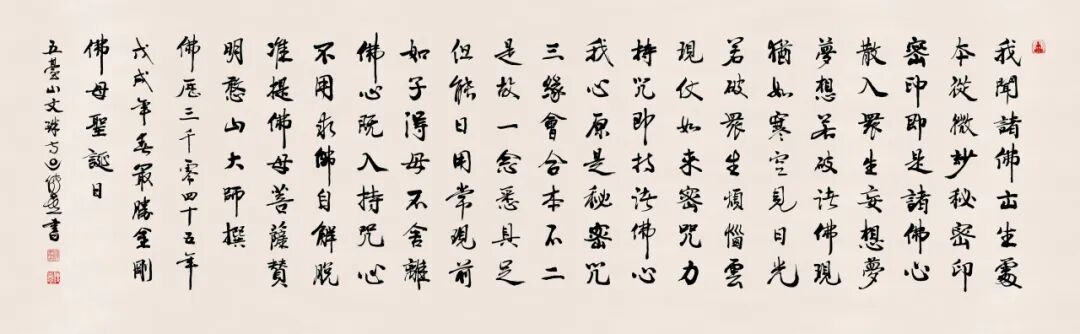 我聞諸佛出生處
本從微妙秘密印
密印即是諸佛心
散入衆生妄想夢
夢想若破諸佛現
猶如寒空見日光
若破衆生煩惱雲
現仗如來密咒力
持咒即持諸佛心
我心原是秘密咒
三緣會合本不二
是故一念悉具足
但能日用常現前
如子得母不舍離
佛心既入持咒心
不用求佛自解脫
准提佛母菩薩贊
明憨山大師撰
佛歷三千零四十五年
戊戌年春最勝金剛
佛母聖誕日
五臺山文殊書